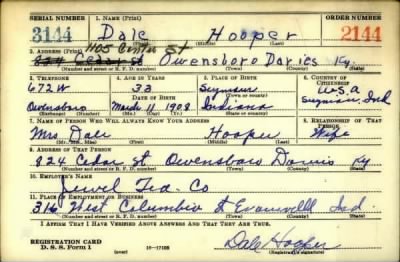 SERIAL NUMBER 1. NAME (Print) ORDER NUMBER
3144 Dale Hooper 2144
(First) (Middle) (Last)
1105 Center St
2. ADDRESS (Print)
824 Cedar St Owensboro Davies Ky.
(Number and street or R. F. D. number) (Town) (County) (State)
3. TELEPHONE 4. AGE IN YEARS 5. PLACE OF BIRTH 6. COUNTRY OF CITIZENSHIP
672W 33 Seymour U.S.A
DATE OF BIRTH (Town or county)
Owensboro March 11 1908 Indiana Seymour, Ind
(Exchange) (Number) (Mo.) (Day) (Yr.) (State or country)
7. NAME OF PERSON WHO WILL ALWAYS KNOW YOUR ADDRESS 8. RELATIONSHIP OF THAT PERSON
Mrs Dale Hooper Wife
(Mr., Mrs., Miss) (First) (Middle) (Last)
9. ADDRESS OF THAT PERSON
824 Cedar St Owensboro Davis Ky
(Number and street or R. F. D. number) (Town) (County) (State)
10. EMPLOYER'S NAME
Jewel Tea. Co
11. PLACE OF EMPLOYMENT OR BUSINESS
316 West Columbia St Evansville Ind.
(Number and street or R. F. D. number) (Town) (County) (State)
I AFFIRM THAT I HAVE VERIFIED ABOVE ANSWERS AND THAT THEY ARE TRUE.
REGISTRATION CARD
D. S. S. Form 1 (over) 16—17105 Dale Hooper
(Registrant's signature)